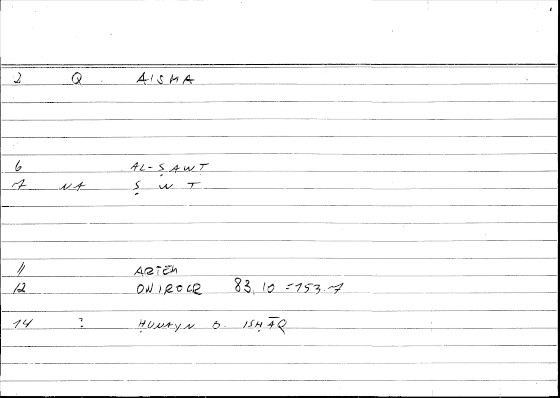 2 Q AISHA
6 AL-ṢAWT
7 NA Ṣ W T
11 ARTEM
12 ONIROCR 83,10 = 153.7
14 ? ḤUNAYN B. ISḤĀQ